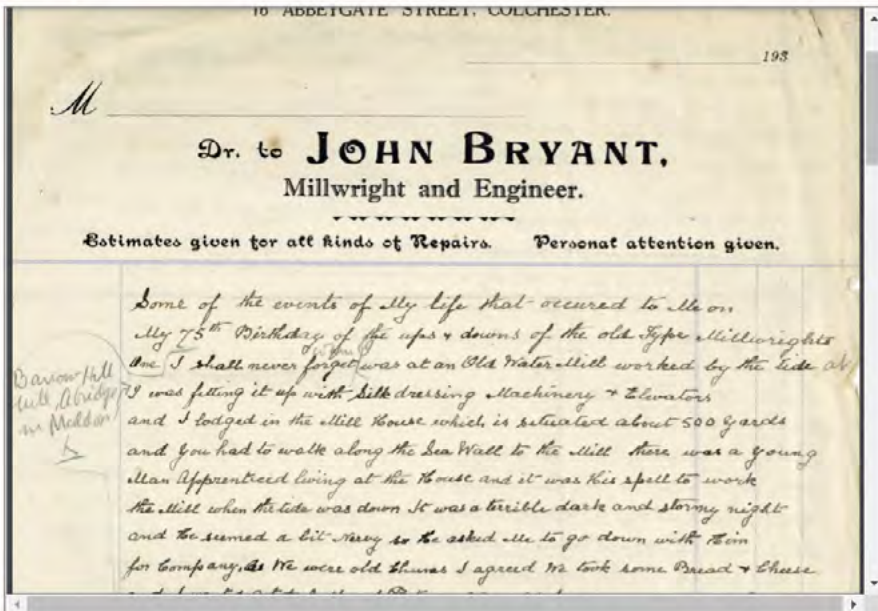 16 ABBEYGATE STREET, COLCHESTER.
193
M
Dr. to JOHN BRYANT,
Millwright and Engineer.
Estimates given for all kinds of Repairs. Personal attention given.
Some of the events of My life that occured to Me on
My 75th Birthday of the ups & downs of the old Type Millwrights
One I shall never forget when was at an Old Water Mill worked by the tide at
Barrow Hill
Mill,
nr Maldon
I was fitting it up with Silk dressing Machinery & Elevators
and I lodged in the Mill House which is situated about 500 Yards
and You had to walk along the Sea Wall to the Mill there was a Young
Man Apprenticed living at the House and it was his spell to work
the Mill when the tide was down It was a terrible dark and stormy night
and He seemed a bit Nervy so He asked Me to go down with Him
for Company, As We were old Chums I agreed We took some Bread & Cheese